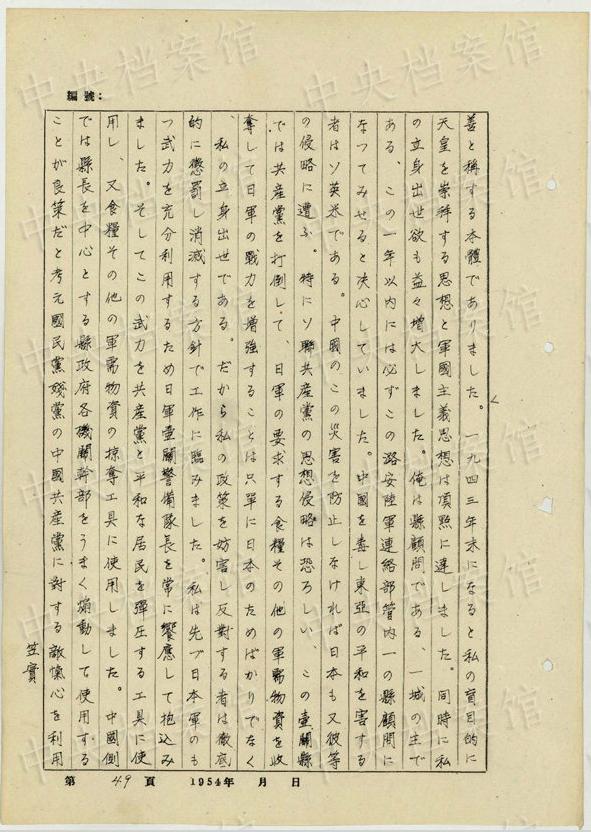 編號:
善と稱する本體でありました。一九四三年末になると私の盲目的に
天皇を崇拝する思想と軍國主義思想は頂點に達しました。同時に私
の立身出世欲も益々増大しました。俺は縣顧問である、一城の主で
ある、この一年以内には必ずこの潞安陸軍連絡部管内一の縣顧問に
なつてみせると决心していました。中國を毒し東亞の平和を害する
者はソ英米である。中國のこの災害を防止しなければ日本も又彼等
の侵略に遭ふ。特にソ聯共産黨の思想侵略は恐ろしい、この壷關縣
では共産黨を打倒して、日軍の要求する食糧その他の軍需物資を收
奪して日軍の戰力を増強することは只單に日本のためばかりでなく
、私の立身出世である。だから私の政策を妨害し反對する者は徹底
的に懲罰し消滅する方針で工作に臨みました。私は先づ日本軍のも
つ武力を充分利用するため日軍壷關警備隊長を常に饗應して抱込み
ました。そしてこの武力を共産黨と平和な居民を彈圧する工具に使
用し、又食糧その他の軍需物資の掠奪工具に使用しました。中國側
では縣長を中心とする縣政府各機關幹部をうまく煽動して使用する
ことが良策だと考元國民黨殘黨の中國共産黨に對する敵愾心を利用
笠實
第 49 頁 1954年 月 日
中央档案馆